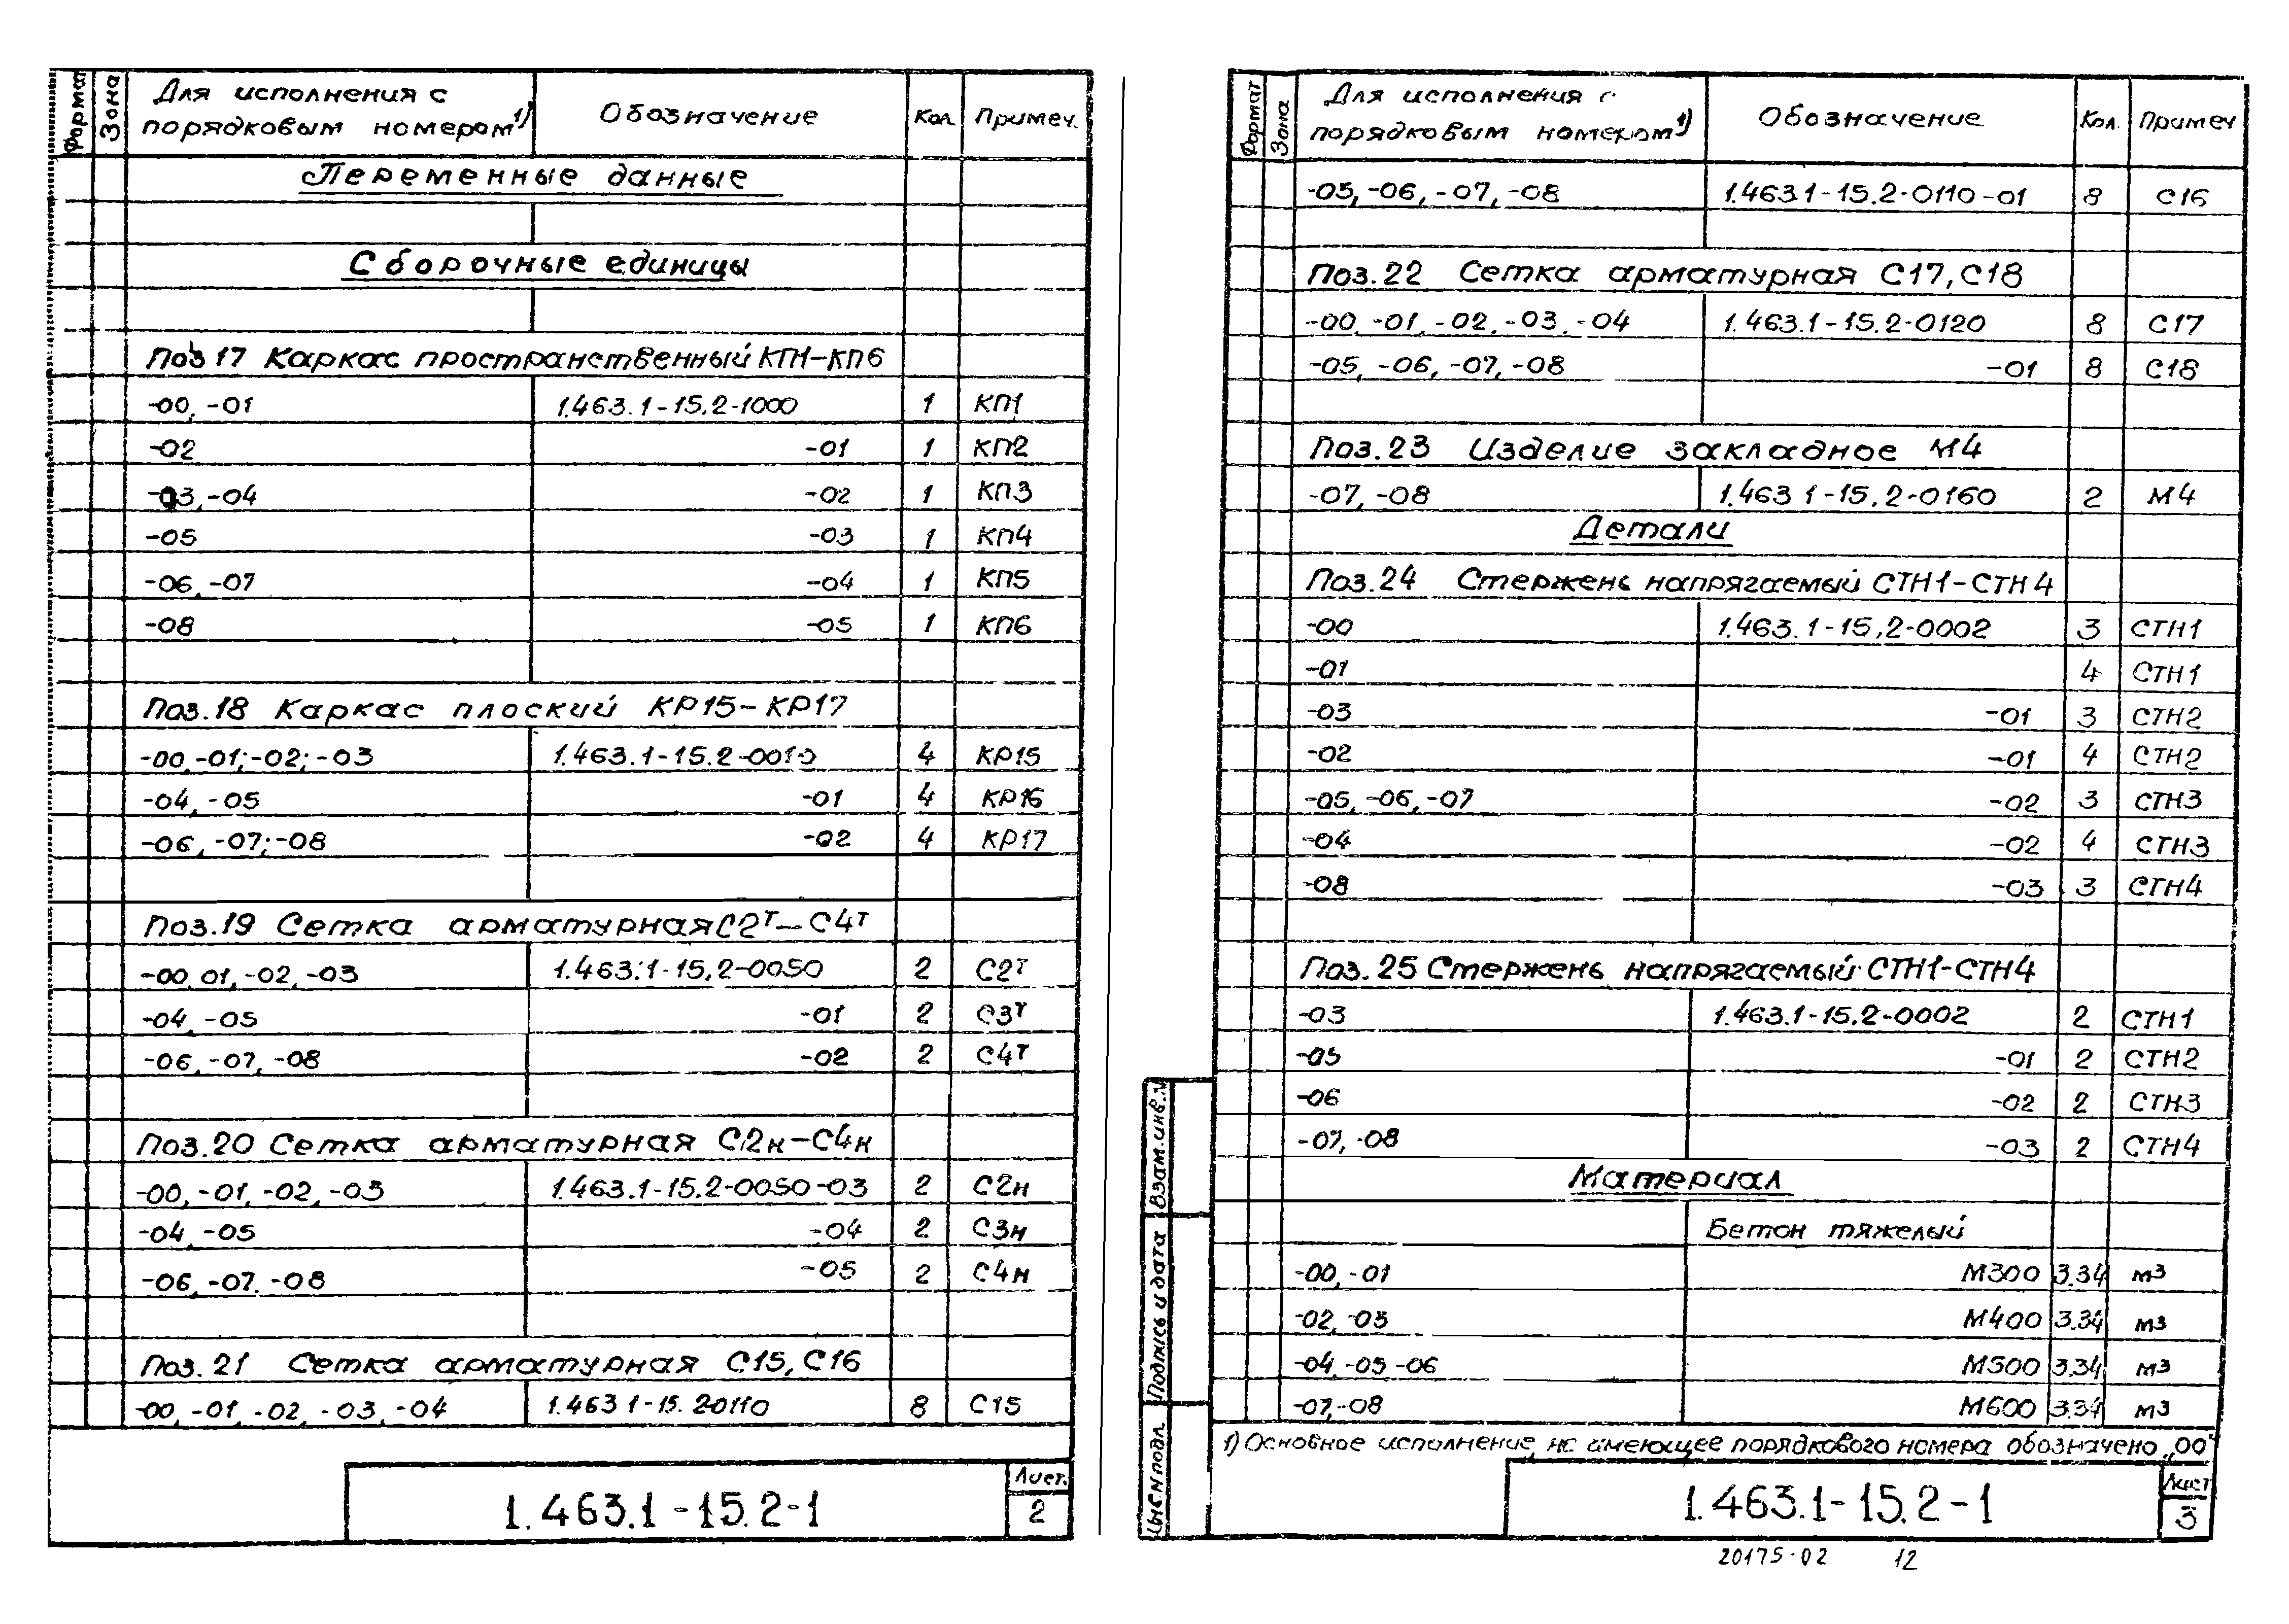 Формат Зона Для исполнения с порядковым номером¹⁾ Обозначение Кол. Примеч.
Переменные данные
Сборочные единицы
Поз 17 Каркас пространственный КП1-КП6
-00, -01 1.463.1-15.2-1000 1 КП1
-02 -01 1 КП2
-03, -04 -02 1 КП3
-05 -03 1 КП4
-06, -07 -04 1 КП5
-08 -05 1 КП6
Поз.18 Каркас плоский КР15-КР17
-00,-01;-02;-03 1.463.1-15.2-0010 4 КР15
-04, -05 -01 4 КР16
-06, -07;-08 -02 4 КР17
Поз.19 Сетка арматурная С2т-С4т
-00 01, -02, -03 1.463.1-15.2-0050 2 С2т
-04, -05 -01 2 С3т
-06, -07, -08 -02 2 С4т
Поз.20 Сетка арматурная С2н-С4н
-00, -01, -02, -03 1.463.1-15.2-0050-03 2 С2н
-04, -05 -04 2 С3н
-06, -07. -08 -05 2 С4н
Поз. 21 Сетка арматурная С15, С16
-00, -01, -02, -03, -04 1.463 1-15. 2-0110 8 С15
1.463.1-15.2-1
Лист.
2
Формат Зона Для исполнения с порядковым номером¹⁾ Обозначение Кол. Примеч
-05, -06, -07, -08 1.463.1-15.2-0110-01 8 С16
Поз.22 Сетка арматурная С17, С18
-00, -01, -02, -03, -04 1.463.1-15.2-0120 8 С17
-05, -06, -07, -08 -01 8 С18
Поз.23 Изделие закладное М4
-07, -08 1.463 1-15.2-0160 2 М4
Детали
Поз.24 Стержень напрягаемый СТН1-СТН4
-00 1.463.1-15.2-0002 3 СТН1
-01 4 СТН1
-03 -01 3 СТН2
-02 -01 4 СТН2
-05, -06, -07 -02 3 СТН3
-04 -02 4 СТН3
-08 -03 3 СТН4
Поз.25 Стержень напрягаемый СТН1-СТН4
-03 1.463.1-15.2-0002 2 СТН1
-05 -01 2 СТН2
-06 -02 2 СТН3
-07, -08 -03 2 СТН4
Материал
Бетон тяжелый
-00, -01 М300 3.34 м3
-02, -03 М400 3.34 м3
-04, -05 -06 М500 3.34 м3
-07,-08 М600 3.34 м3
1) Основное исполнение, не имеющее порядкового номера обозначено „00"
Инв.N подл. Подпись и дата Взам.инв.N
1.463.1-15.2-1
Лист
3
20175-02 12